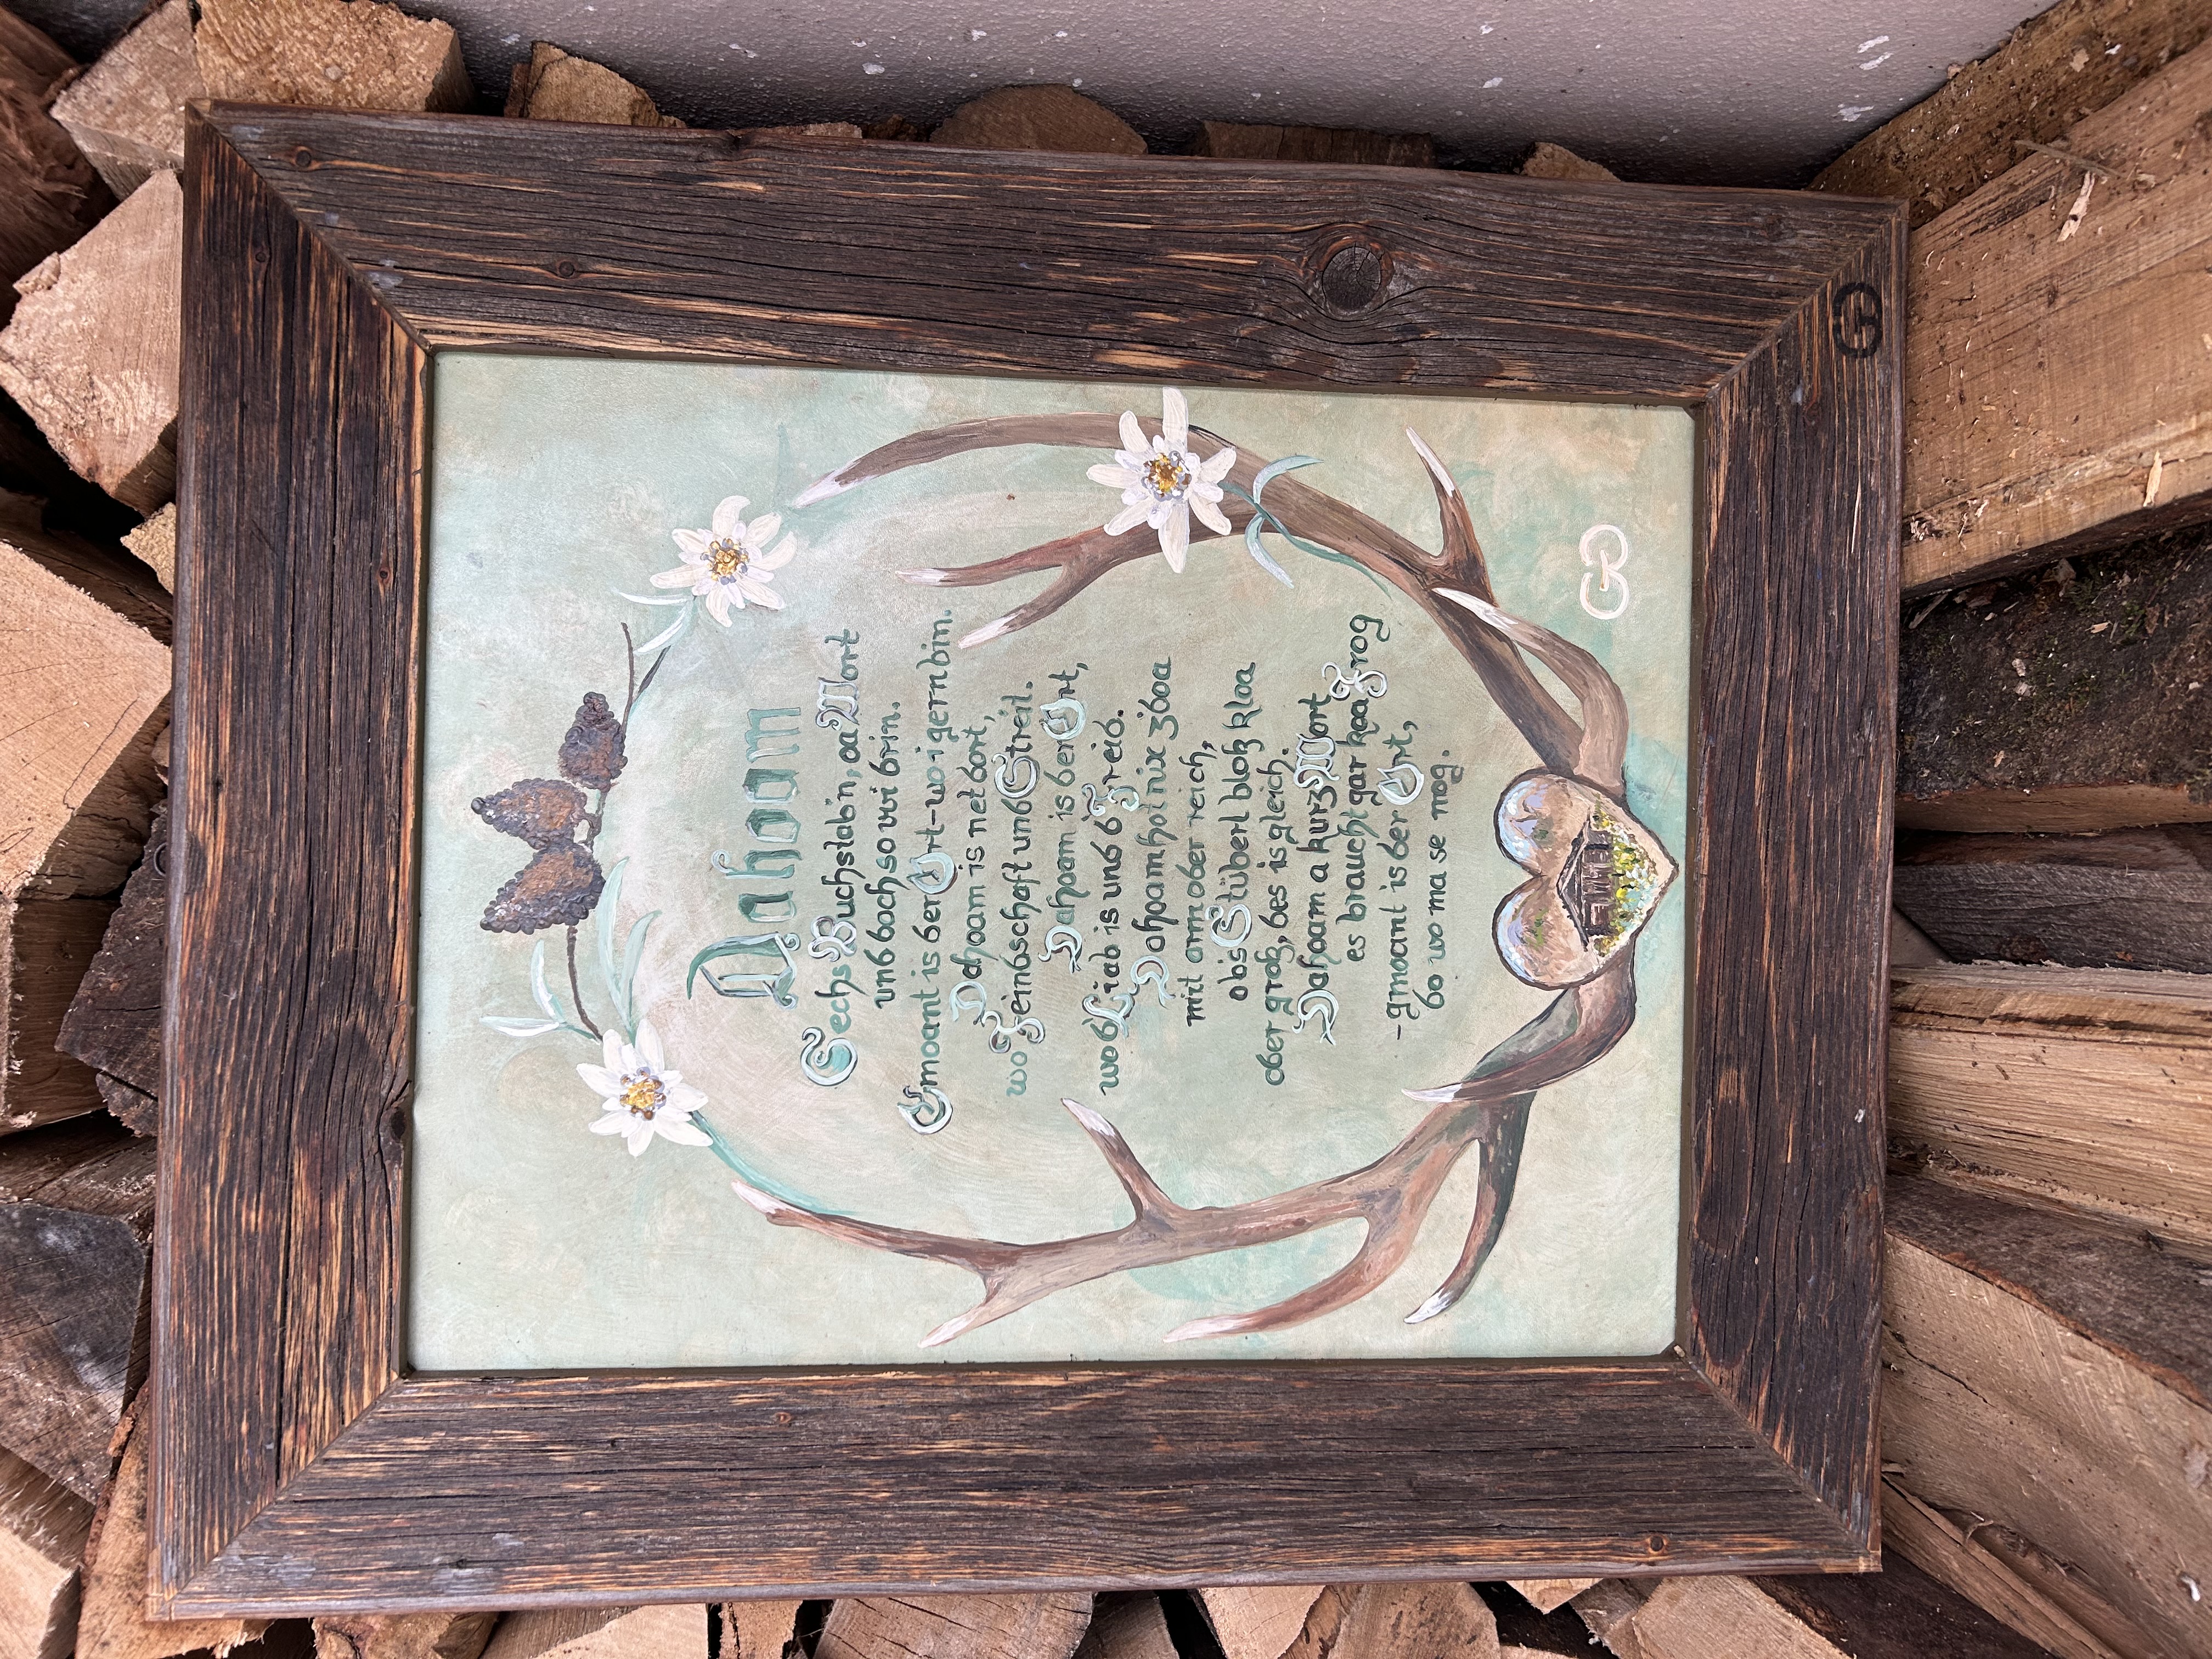 Dahoam
Sechs Buachstabn, oa Wort
und doch so vui drin.
Gmoant is der Ort-wo i gern bin.
Dahoam is net dort,
wo Feindschaft und Streit.
Dahoam is der Ort,
wo d'Liab is und d'Freid.
Dahoam hot nix z'doa
mit arm oder reich,
obs Stüberl bloß kloa
oder groß, des is gleich.
Dahoam a kurz Wort
es braucht gar koa Frog
-gmoant is der Ort,
do wo ma se mog.